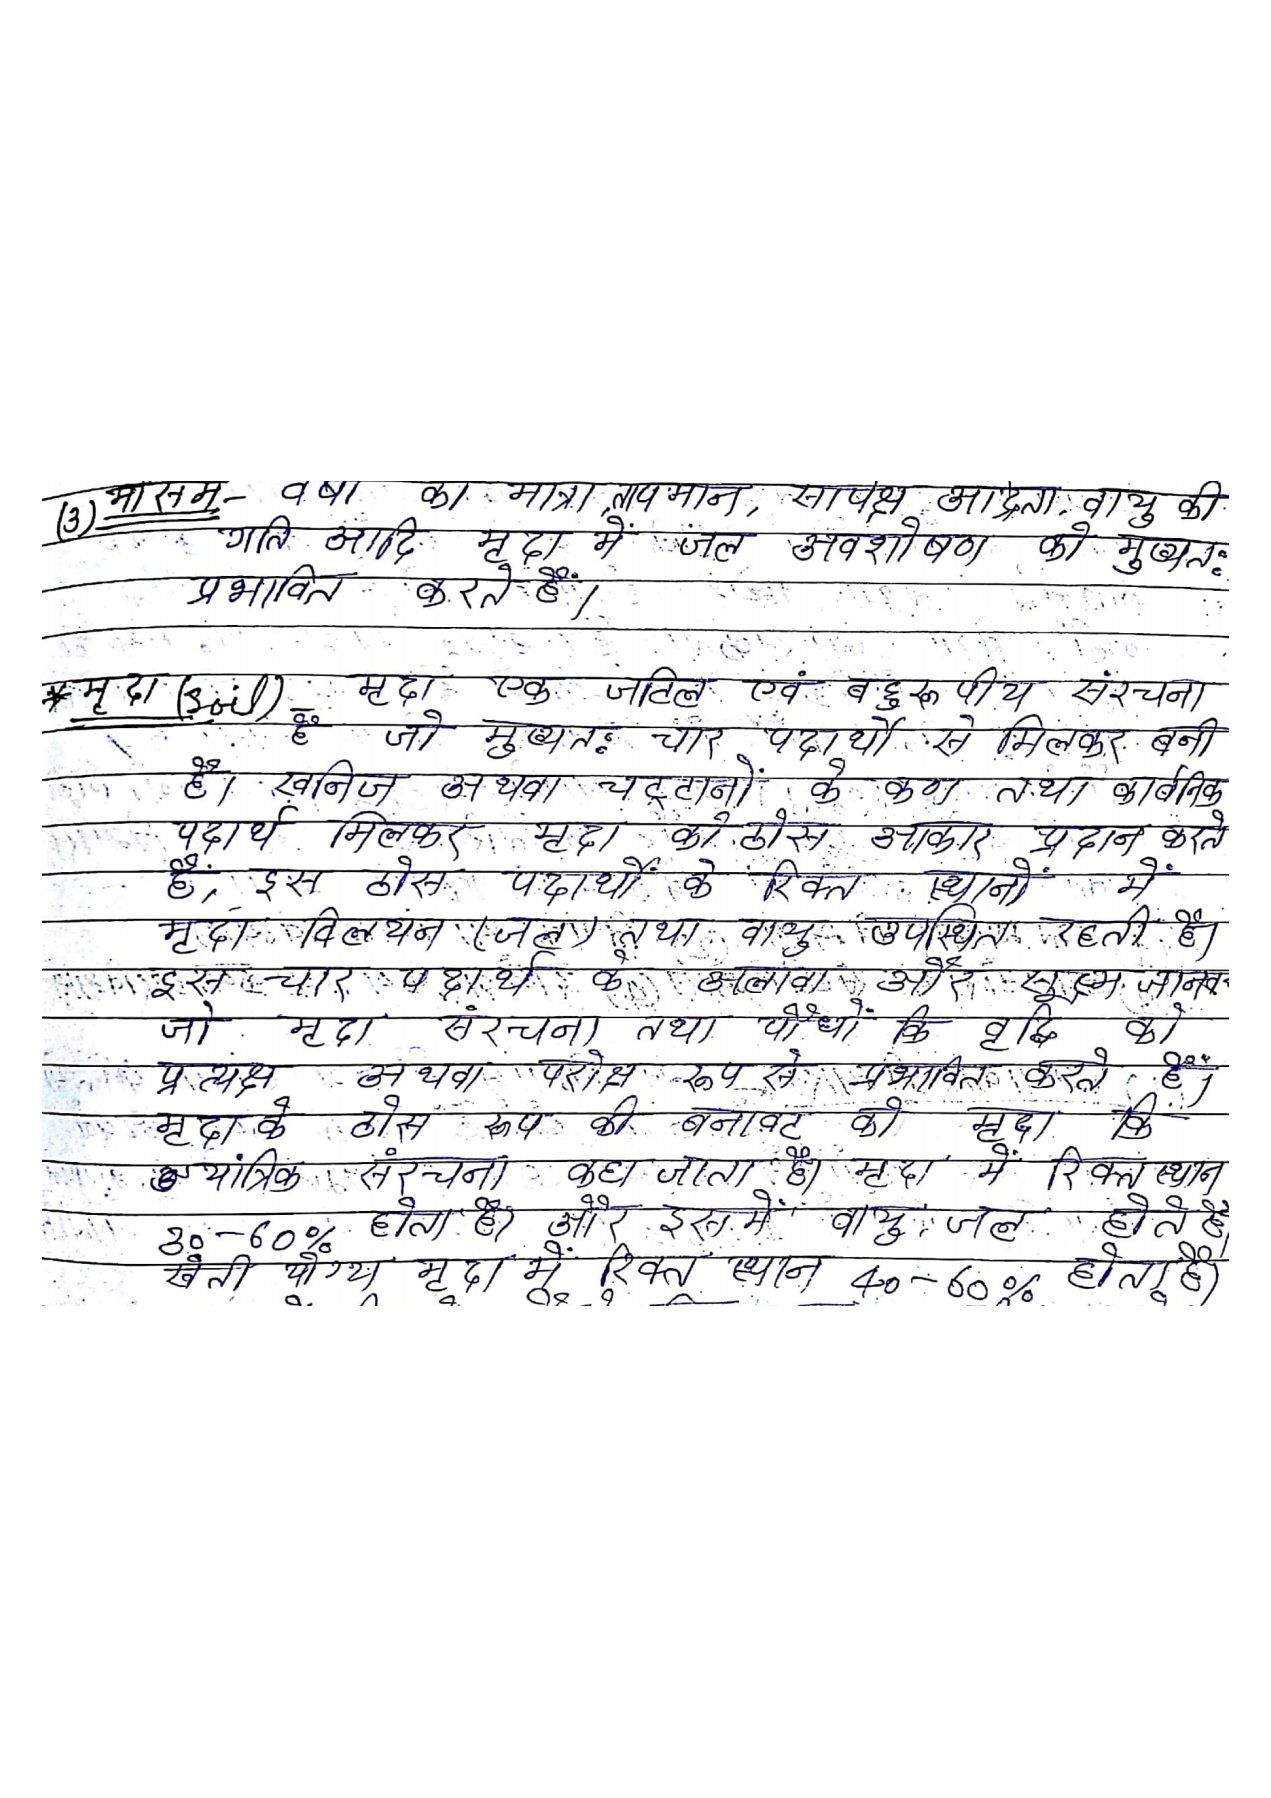 (3) मौसम - वर्षा की मात्रा, तापमान, सापेक्ष आर्द्रता, वायु की
गति आदि मृदा में जल अवशोषण को मुख्यतः
प्रभावित करते हैं।
* मृदा (Soil) - मृदा एक जटिल एवं बहुरूपीय संरचना
है जो मुख्यतः चार पदार्थों से मिलकर बनी
है। खनिज अथवा चट्टानों के कण तथा कार्बनिक
पदार्थ मिलकर मृदा को ठोस आकार प्रदान करते
हैं, इस ठोस पदार्थों के रिक्त स्थानों में
मृदा विलयन (जल) तथा वायु उपस्थित रहती है।
इस चार पदार्थ के अलावा और सूक्ष्म जानव
जो मृदा संरचना तथा पौधों कि वृद्धि को
प्रत्यक्ष अथवा परोक्ष रूप से प्रभावित करते हैं।
मृदा के ठोस रूप की बनावट को मृदा कि
यांत्रिक संरचना कहा जाता है। मृदा में रिक्त स्थान
30-60% होता है। और इसमें वायु, जल होते हैं,
खेती योग्य मृदा में रिक्त स्थान 40-60% होता है।